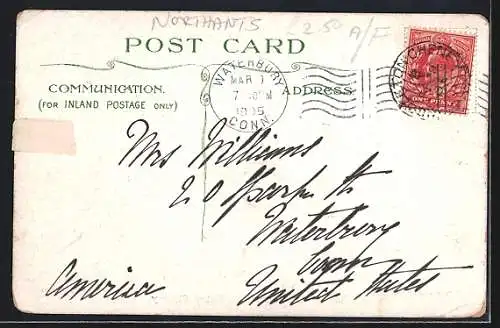 NORTHANTS 2.50 A/F
POST CARD
COMMUNICATION.
(FOR INLAND POSTAGE ONLY)
ADDRESS
WATERBURY
MAR 1
7
CONN.
ONE PENNY
Mrs Williams
20 St
Waterbury
Conn
America
United States